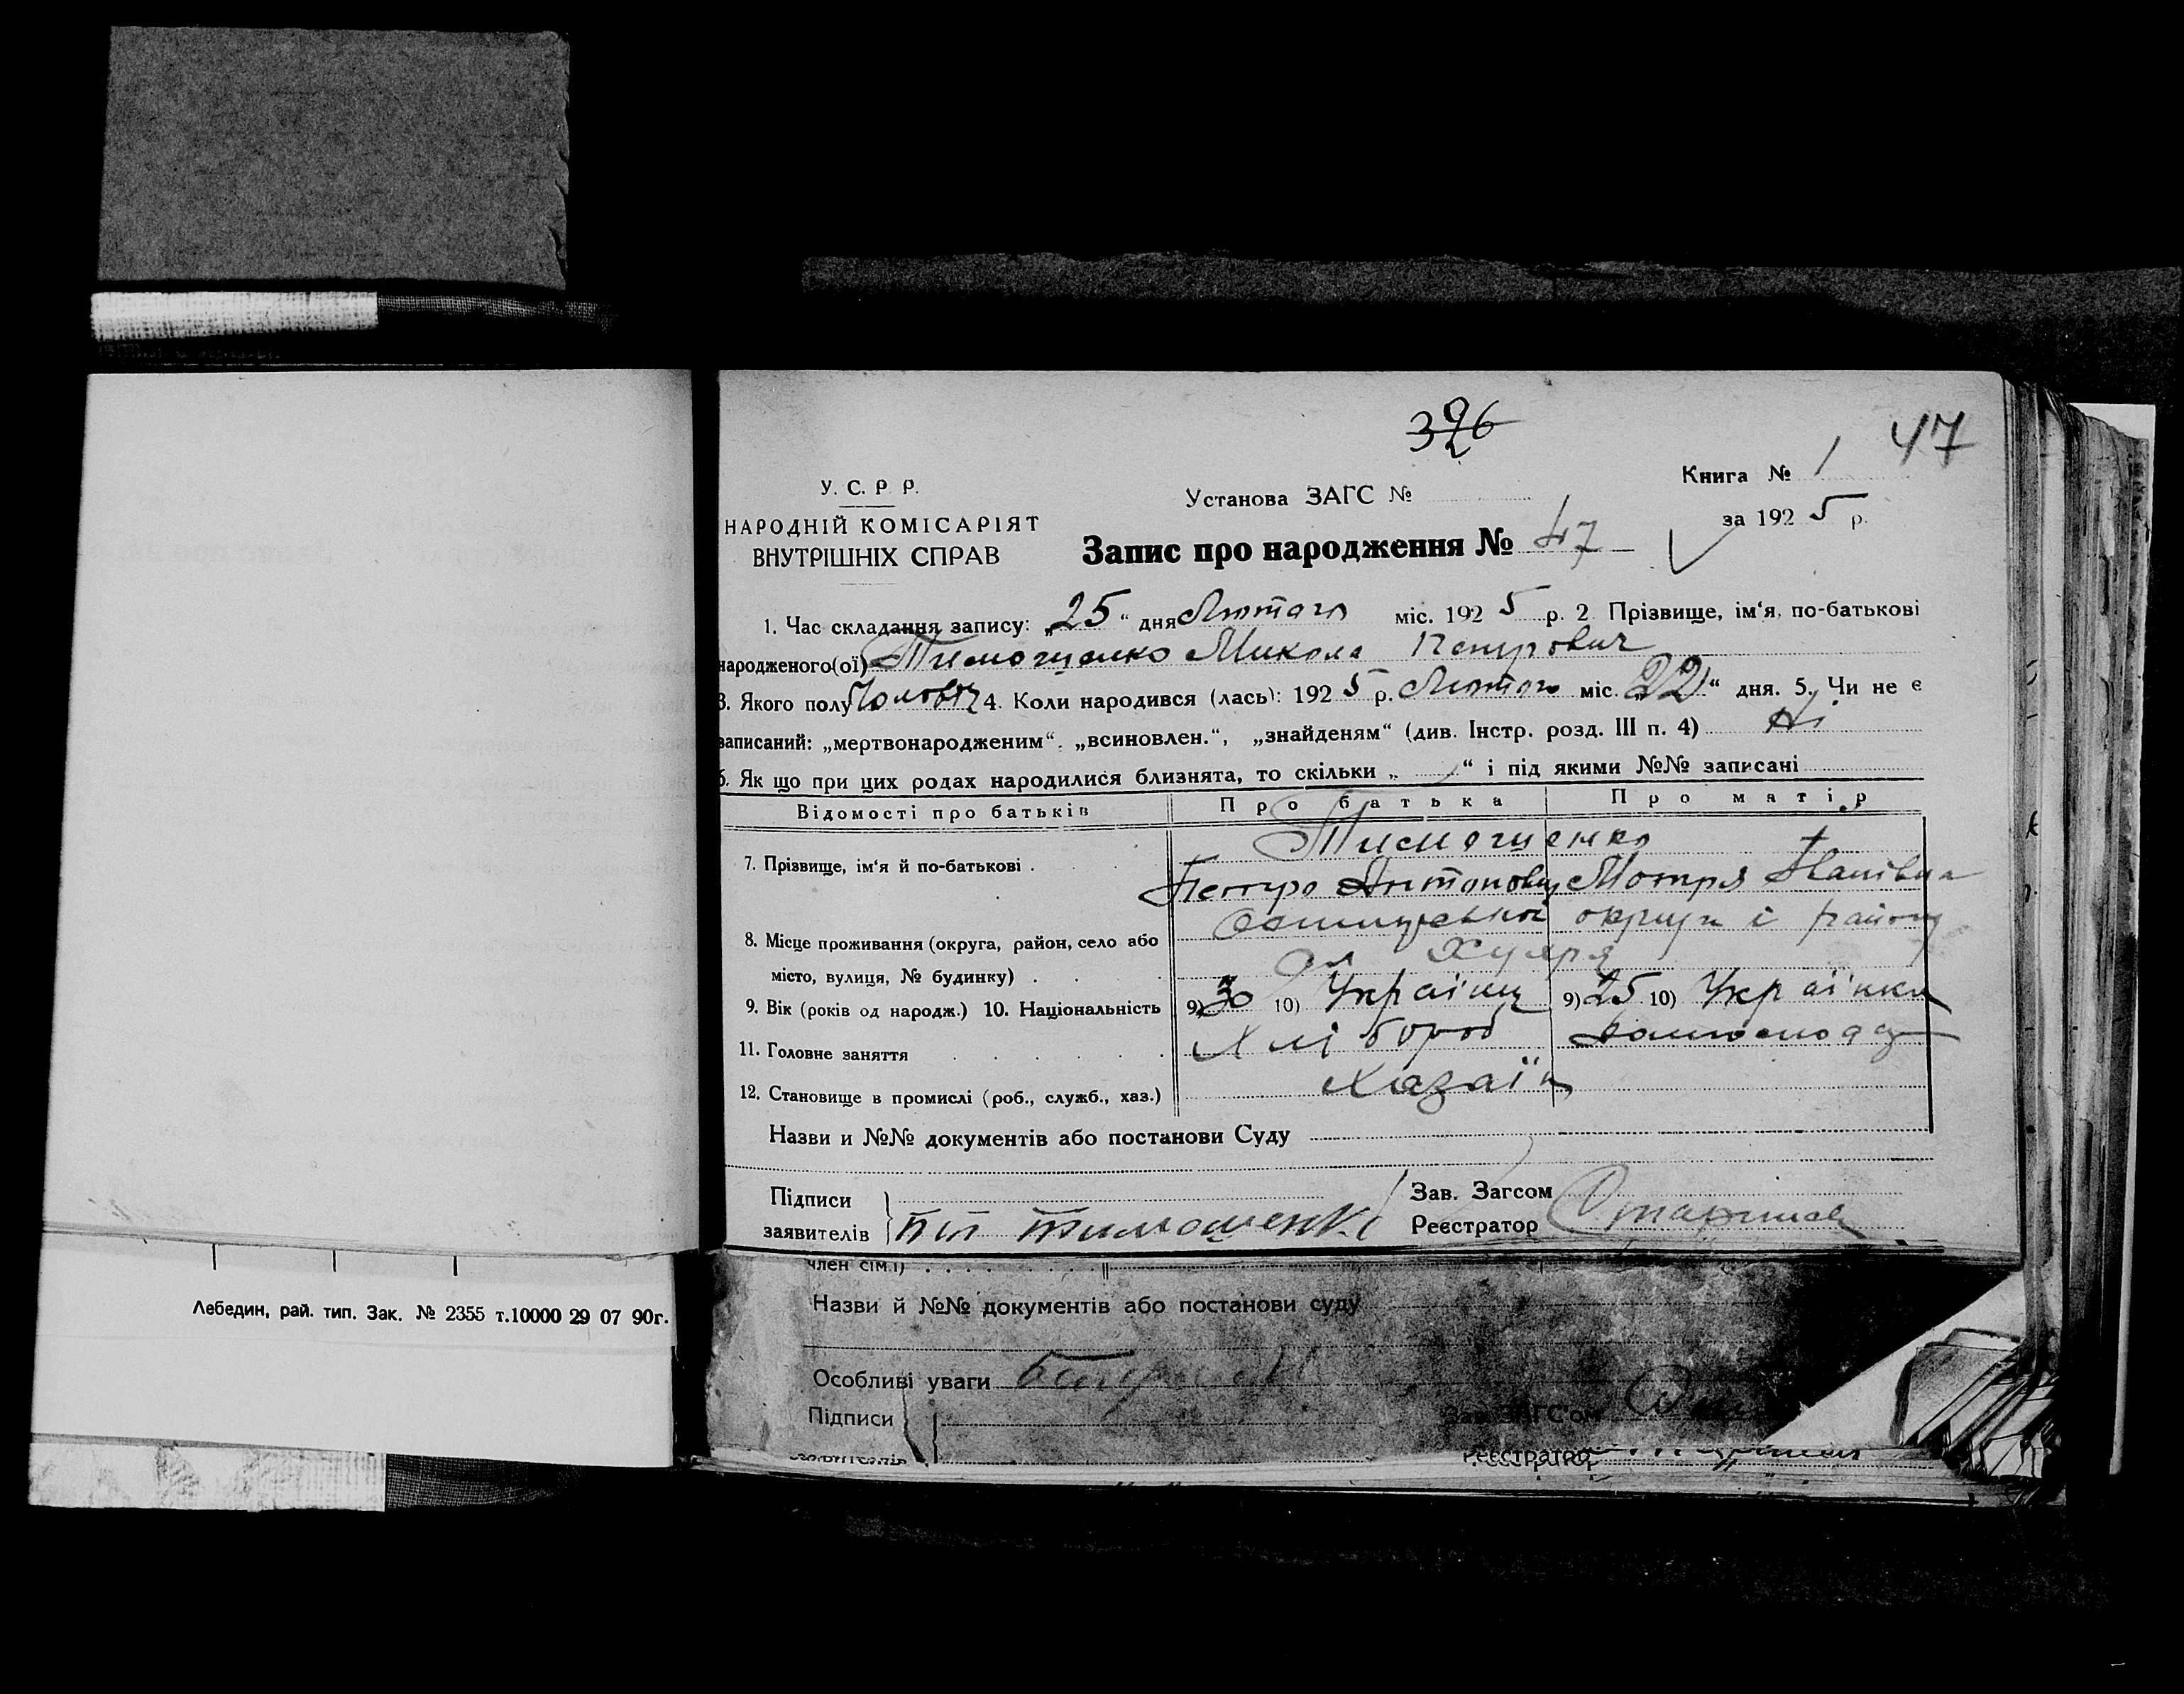 326
47
Книга № 1
У. С. Р Р.
Установа ЗАГС №
за 192 5 р.
НАРОДНІЙ КОМІСАРІЯТ
ВНУТРІШНІХ СПРАВ
Запис про народження № 47
1. Час складання запису: „25“ дня Лютого міс. 192 5 р. 2. Прізвище, ім‘я, по-батькові
народженого(ої) Тимощенко Микола Петрович
3. Якого полу Чоловіч 4. Коли народився (лась): 192 5 р. Лютого міс. „22“ дня. 5. Чи не є
записаний: „мертвонародженим“. „всиновлен.“, „знайденям“ (див. Інстр. розд. III п. 4) Ні
6. Як що при цих родах народилися близнята, то скільки „ “ і під якими №№ записані
Відомості про батьків Про батька Про матір
Тимощенко
7. Прізвище, ім‘я й по-батькові . Петро Антонович Мотря Іванівна
округи і району
8. Місце проживання (округа, район, село або
місто, вулиця, № будинку) .
9. Вік (років од народж.) 10. Національність 9) 30 10) Українц 9) 25 10) Українка
11. Головне заняття Хлібороб
12. Становище в промислі (роб., служб., хаз.) Хазаїн
Назви и №№ документів або постанови Суду
Підписи Зав. Загсом
заявителів Тимошенко Реєстратор
член сім.ї)
Лебедин, рай. тип. Зак. № 2355 т.10000 29 07 90г.
Назви й №№ документів або постанови суду
Особливі уваги
Підписи Зав. ЗАГС'ом
заявителів Реєстратор